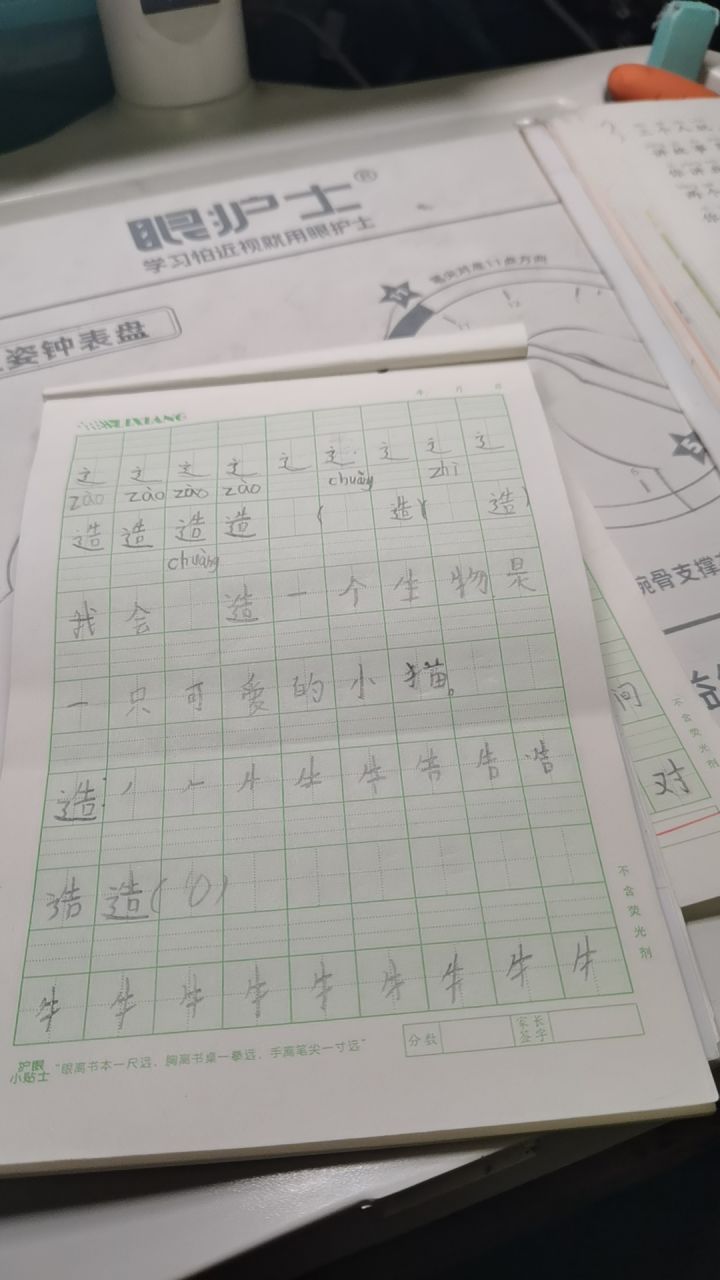 眼护士®
学习怕近视就用眼护士
姿钟表盘
笔尖对准11点方向
LIXIANG
年 月 日
辶 辶 辶 辶 辶 辶 辶 辶 辶
zào zào zào zào chuàng zhì
造 造 造 造 ( 造)( 造)
chuàng
我 会 造 一 个 生 物 是
一 只 可 爱 的 小 猫。
造:
告 告
造 造 (10)
牛 牛 牛 牛 牛 牛 牛 牛 牛
护眼小贴士 "眼离书本一尺远、胸离书桌一拳远、手离笔尖一寸远"
分数 家长签字
不含荧光剂
腕骨支撑
间
对
不含荧光剂